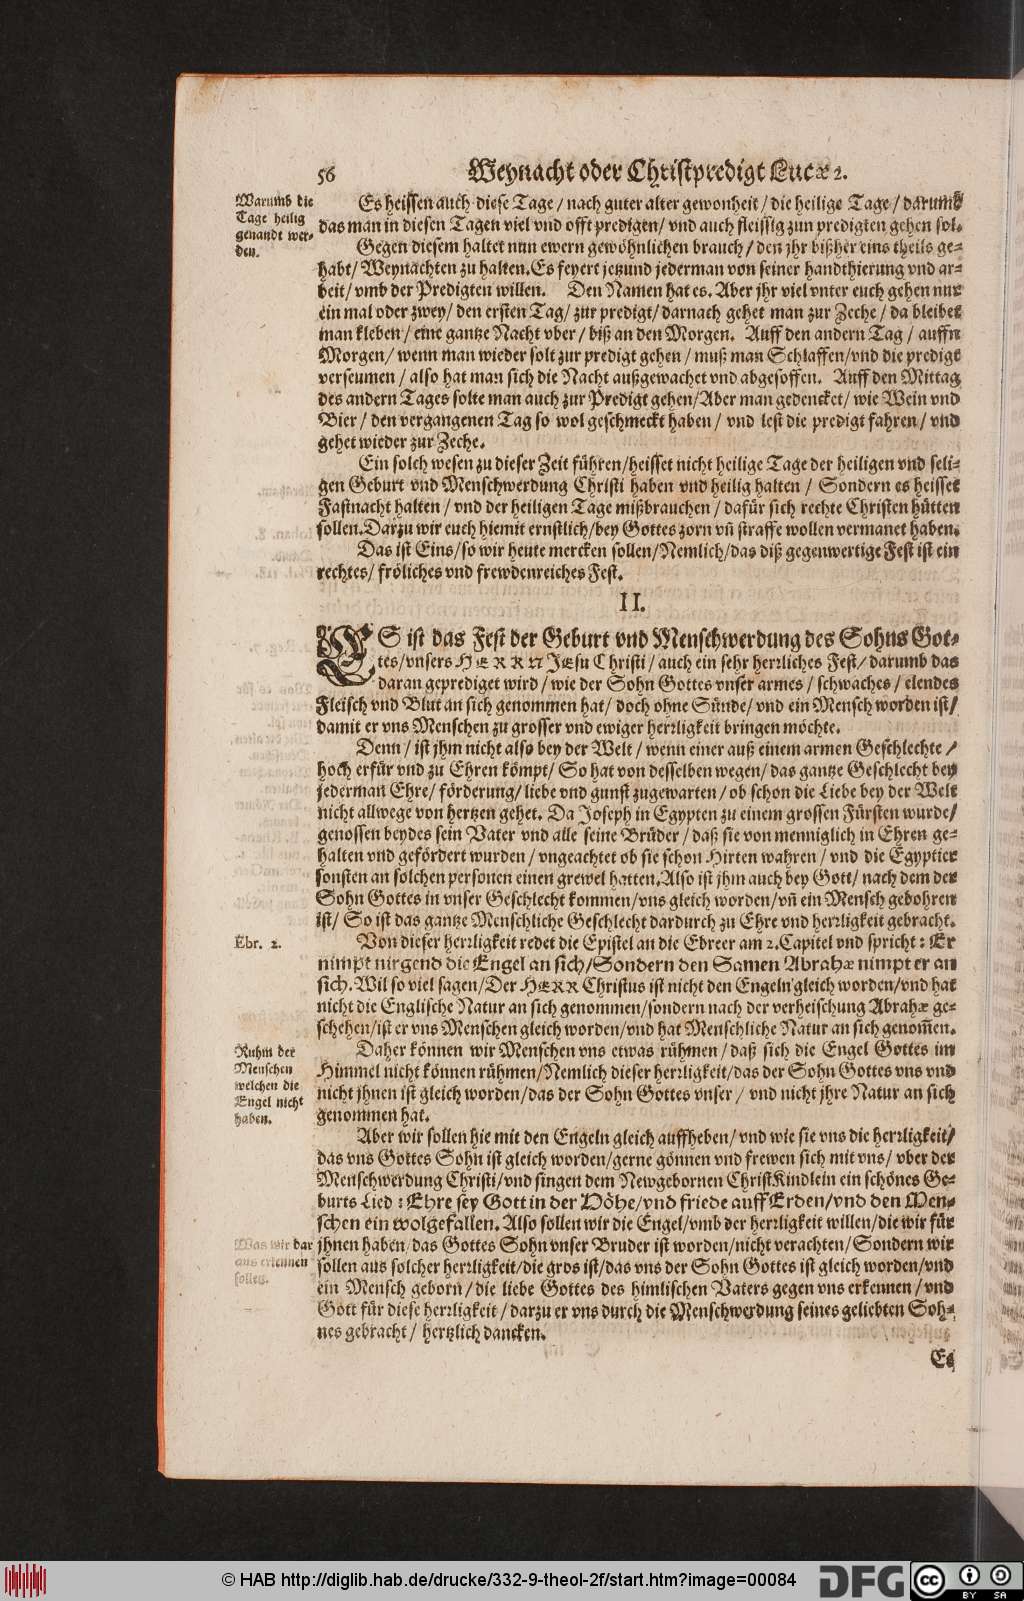 56
Weynacht oder Christpredigt Lucæ 2.
Warumb die
Tage heilig
genandt wer-
den.
Es heissen auch diese Tage / nach guter alter gewonheit / die heilige Tage / darumb
das man in diesen Tagen viel vnd offt predigen / vnd auch fleissig zun predigten gehen sol.
Gegen diesem haltet nun ewern gewöhnlichen brauch / den jhr bißher eins theils ge-
habt / Weynachten zu halten. Es feyert jetzund jederman von seiner handthierung vnd ar-
beit / vmb der Predigten willen. Den Namen hat es. Aber jhr viel vnter euch gehen nur
ein mal oder zwey / den ersten Tag / zur predigt / darnach gehet man zur Zeche / da bleibet
man kleben / eine gantze Nacht vber / biß an den Morgen. Auff den andern Tag / auffn
Morgen / wenn man wieder solt zur predigt gehen / muß man Schlaffen / vnd die predigt
verseumen / also hat man sich die Nacht außgewachet vnd abgesoffen. Auff den Mittag
des andern Tages solte man auch zur Predigt gehen / Aber man gedencket / wie Wein vnd
Bier / den vergangenen Tag so wol geschmeckt haben / vnd lest die predigt fahren / vnd
gehet wieder zur Zeche.
Ein solch wesen zu dieser Zeit führen / heisset nicht heilige Tage der heiligen vnd seli-
gen Geburt vnd Menschwerdung Christi haben vnd heilig halten / Sondern es heisset
Fastnacht halten / vnd der heiligen Tage mißbrauchen / dafür sich rechte Christen hütten
sollen. Darzu wir euch hiemit ernstlich / bey Gottes zorn vñ straffe wollen vermanet haben.
Das ist Eins / so wir heute mercken sollen / Nemlich / das diß gegenwertige Fest ist ein
rechtes / fröliches vnd frewdenreiches Fest.
II.
ES ist das Fest der Geburt vnd Menschwerdung des Sohns Got-
tes / vnsers HERRN JEsu Christi / auch ein sehr herrliches Fest / darumb das
daran geprediget wird / wie der Sohn Gottes vnser armes / schwaches / elendes
Fleisch vnd Blut an sich genommen hat / doch ohne Sünde / vnd ein Mensch worden ist /
damit er vns Menschen zu grosser vnd ewiger herrligkeit bringen möchte.
Denn / ist jhm nicht also bey der Welt / wenn einer auß einem armen Geschlechte /
hoch erfür vnd zu Ehren kömpt / So hat von desselben wegen / das gantze Geschlecht bey
jederman Ehre / förderung / liebe vnd gunst zugewarten / ob schon die Liebe bey der Welt
nicht allwege von hertzen gehet. Da Joseph in Egypten zu einem grossen Fürsten wurde /
genossen beydes sein Vater vnd alle seine Brüder / daß sie von menniglich in Ehren ge-
halten vnd gefördert wurden / vngeachtet ob sie schon Hirten wahren / vnd die Egyptier
sonsten an solchen personen einen grewel hatten. Also ist jhm auch bey Gott / nach dem der
Sohn Gottes in vnser Geschlecht kommen / vns gleich worden / vñ ein Mensch gebohren
ist / So ist das gantze Menschliche Geschlecht dardurch zu Ehre vnd herrligkeit gebracht.
Ebr. 2.
Von dieser herrligkeit redet die Epistel an die Ebreer am 2. Capitel vnd spricht : Er
nimpt nirgend die Engel an sich / Sondern den Samen Abrahæ nimpt er an
sich. Wil so viel sagen / Der HERR Christus ist nicht den Engeln gleich worden / vnd hat
nicht die Englische Natur an sich genommen / sondern nach der verheischung Abrahæ ge-
schehen / ist er vns Menschen gleich worden / vnd hat Menschliche Natur an sich genom̃en.
Ruhm der
Menschen
welchen die
Engel nicht
haben.
Daher können wir Menschen vns etwas rühmen / daß sich die Engel Gottes im
Himmel nicht können rühmen / Nemlich dieser herrligkeit / das der Sohn Gottes vns vnd
nicht jhnen ist gleich worden / das der Sohn Gottes vnser / vnd nicht jhre Natur an sich
genommen hat.
Aber wir sollen hie mit den Engeln gleich auffheben / vnd wie sie vns die herrligkeit /
das vns Gottes Sohn ist gleich worden / gerne gönnen vnd frewen sich mit vns / vber der
Menschwerdung Christi / vnd singen dem Newgebornen ChristKindlein ein schönes Ge-
burts Lied : Ehre sey Gott in der Höhe / vnd friede auff Erden / vnd den Men-
schen ein wolgefallen. Also sollen wir die Engel / vmb der herrligkeit willen / die wir für
Was wir dar
aus erkennen
sollen.
jhnen haben / das Gottes Sohn vnser Bruder ist worden / nicht verachten / Sondern wir
sollen aus solcher herrligkeit / die gros ist / das vns der Sohn Gottes ist gleich worden / vnd
ein Mensch geborn / die liebe Gottes des himlischen Vaters gegen vns erkennen / vnd
Gott für diese herrligkeit / darzu er vns durch die Menschwerdung seines geliebten Soh-
nes gebracht / hertzlich dancken.
Es
© HAB http://diglib.hab.de/drucke/332-9-theol-2f/start.htm?image=00084
DFG
cc BY SA